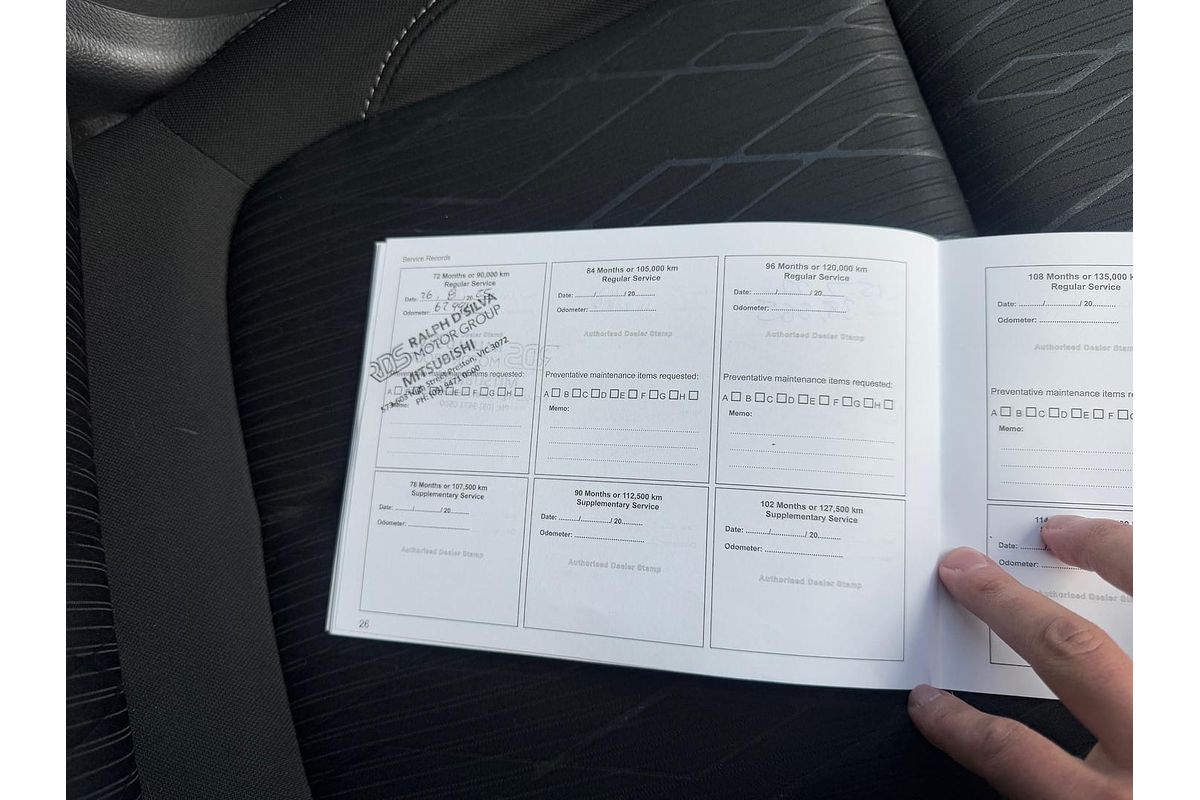 Service Records
72 Months or 90,000 km
Regular Service
Date: 26 / 8 / 20
Odometer:
RDS RALPH D'SILVA
MOTOR GROUP
MITSUBISHI
Street, Preston, VIC 3072
PH: (03) 9471 0500
maintenance items requested:
A □ E □ F □ G □ H □
Memo:
84 Months or 105,000 km
Regular Service
Date: ......../............../ 20..........
Odometer: ................................
Authorised Dealer Stamp
Preventative maintenance items requested:
A □ B □ C □ D □ E □ F □ G □ H □
Memo:
96 Months or 120,000 km
Regular Service
Date: ......../............../ 20..........
Odometer: ................................
Authorised Dealer Stamp
Preventative maintenance items requested:
A □ B □ C □ D □ E □ F □ G □ H □
Memo:
78 Months or 107,500 km
Supplementary Service
Date: ......../............../ 20..........
Odometer: ................................
Authorised Dealer Stamp
90 Months or 112,500 km
Supplementary Service
Date: ......../............../ 20..........
Odometer: ................................
Authorised Dealer Stamp
102 Months or 127,500 km
Supplementary Service
Date: ......../............../ 20..........
Odometer: ................................
Authorised Dealer Stamp
26
108 Months or 135,000 k
Regular Service
Date: ......../............../ 20..........
Odometer: ................................
Authorised Dealer Stam
Preventative maintenance items r
A □ B □ C □ D □ E □ F □ G
Memo:
114
Date: ......../
Odometer: ................
Authorised Dealer Sta